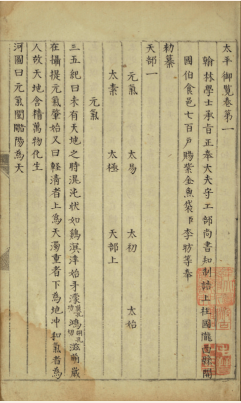 太平御覽卷第一
翰林學士承旨正奉大夫守工部尚書知制誥上柱國隴西縣開
國伯食邑七百戶賜紫金魚袋臣李昉等奉
勑纂
天部一
元氣 太易 太初 太始
太素 太極 天部上
元氣
三五紀曰未有天地之時混沌狀如鷄溟涬始牙濛鴻滋萌歲
在攝提元氣肇始又曰輕清者上爲天濁重者下爲地冲和氣者爲
人故天地含精萬物化生
河圖曰元氣闓陽爲天